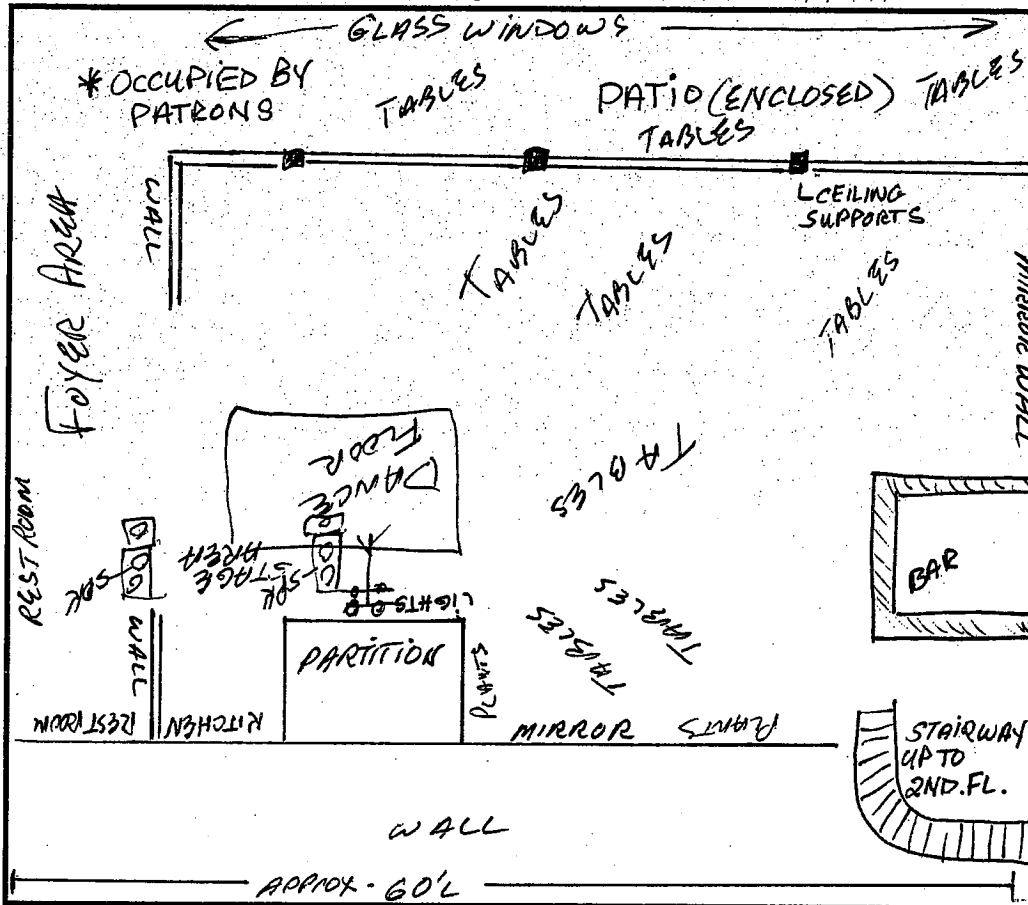 GLASS WINDOWS
* OCCUPIED BY
PATRONS
TABLES
PATIO (ENCLOSED)
TABLES
TABLES
WALL
CEILING
SUPPORTS
FOYER AREA
TABLES
TABLES
TABLES
MIRROR WALL
DANCE
FLOOR
TABLES
RESTROOM
SPK
STAGE
AREA
SPK
LIGHTS
BAR
WALL
PARTITION
PLANTS
TABLES
TABLES
RESTROOM
KITCHEN
MIRROR
PLANTS
STAIRWAY
UP TO
2ND. FL.
WALL
APPROX. 60'L